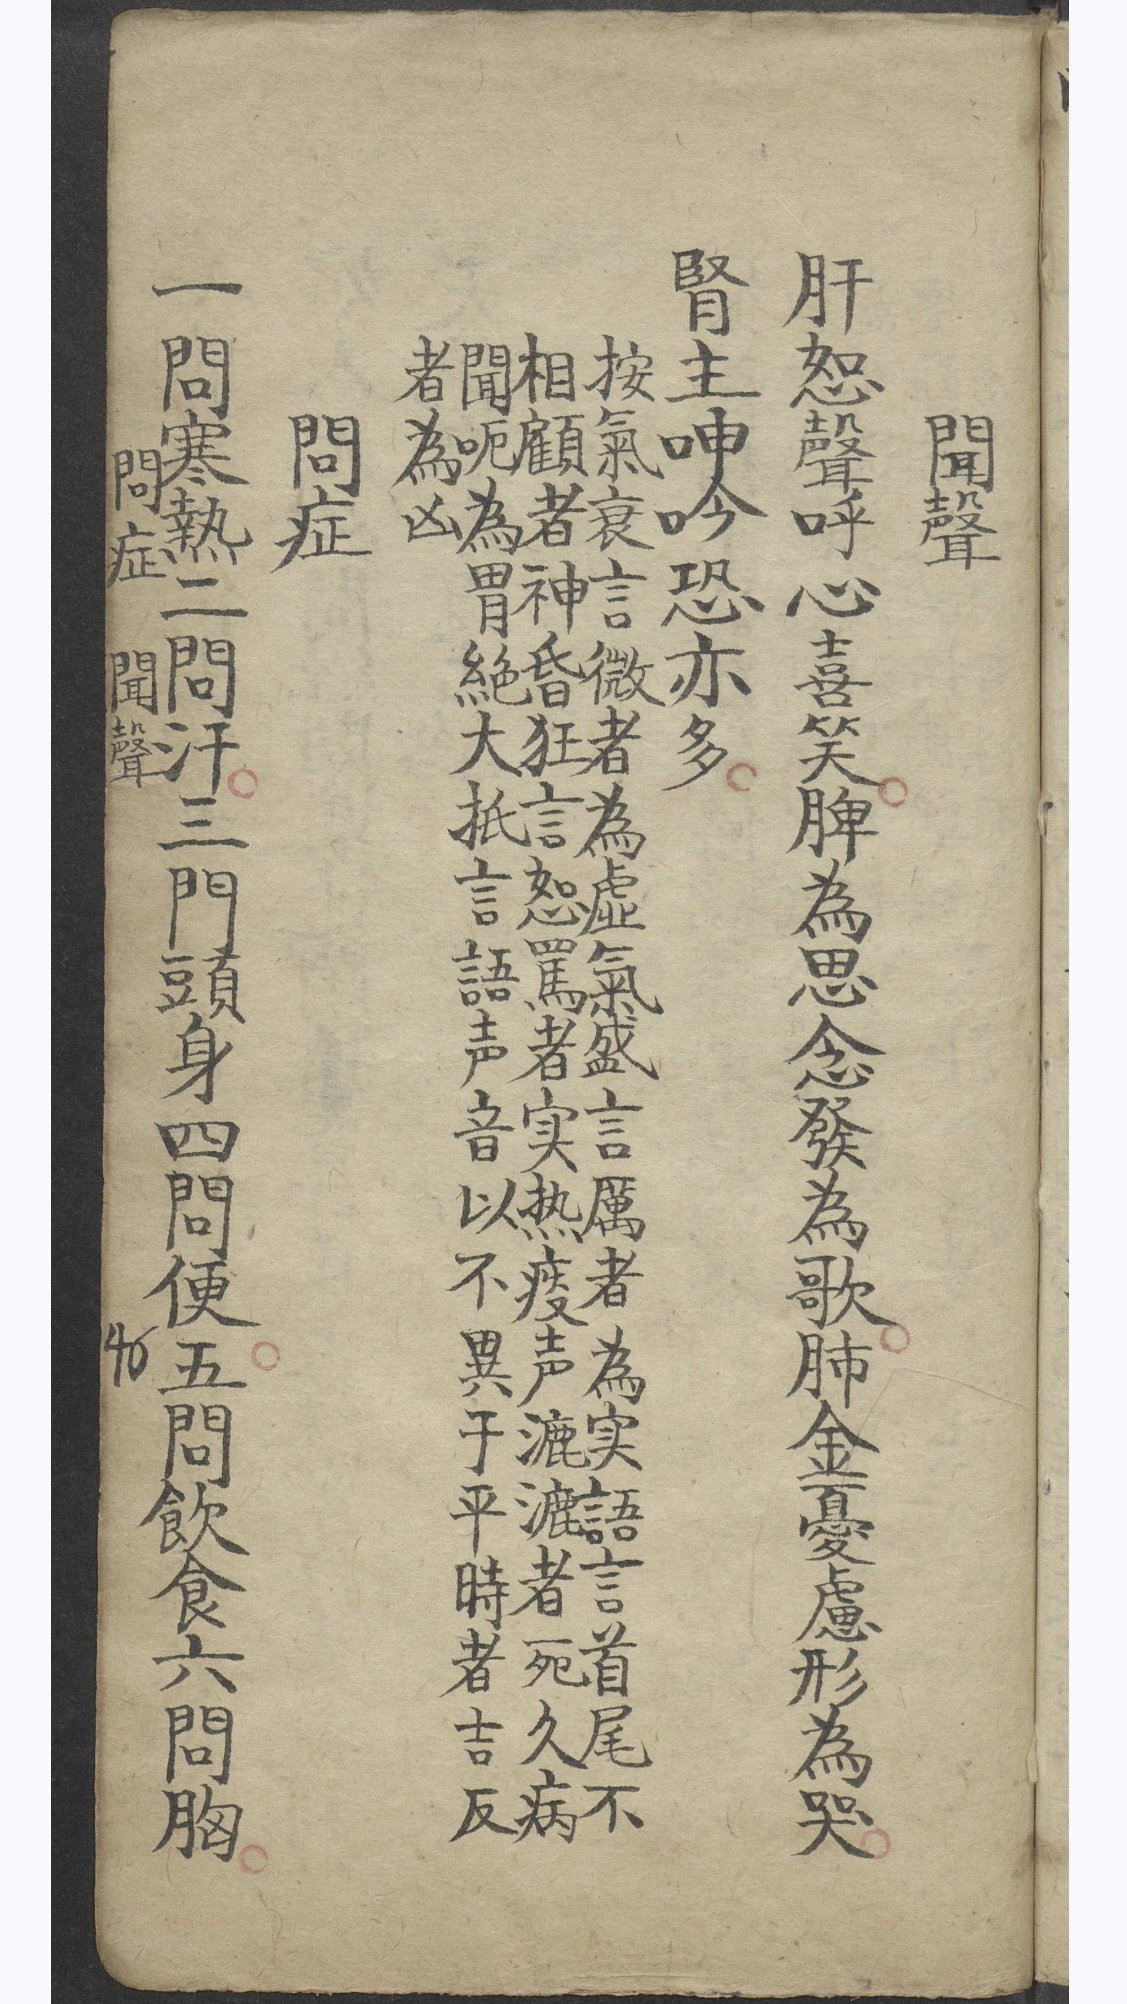 聞聲
肝恕聲呼心喜笑脾為思念發為歌肺金憂慮形為哭
腎主呻吟恐亦多
按氣衰言微者為虛氣盛言厲者為实語言首尾不
相顧者神昏狂言恕罵者实热疫声漉漉者死久病
聞呃為胃絶大抵言語声音以不異于平時者吉反
者為凶
問症
一問寒熱二問汗三門頭身四問便五問飲食六問胸
問症 聞聲 46